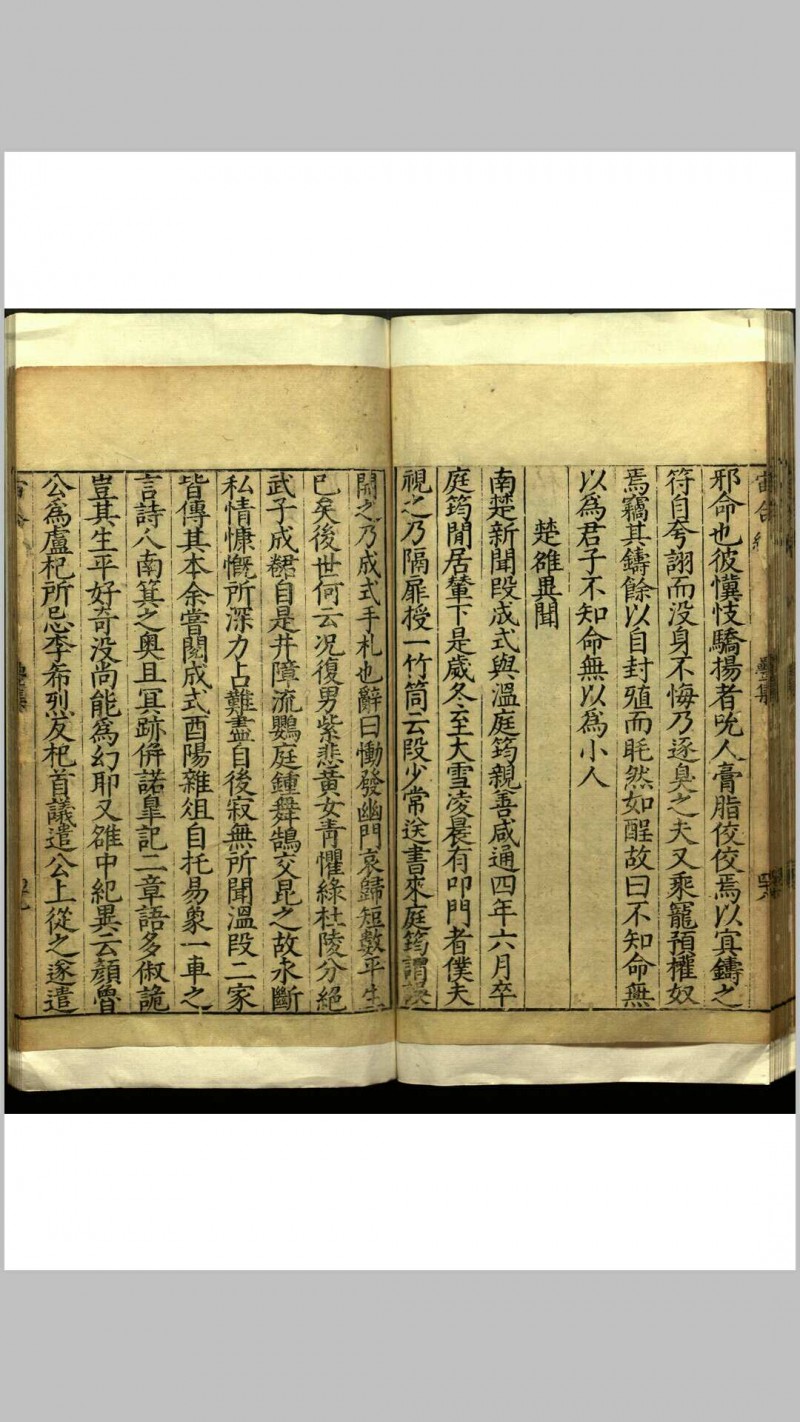 邪命也彼慎忮驕揚者吮人膏脂佼佼焉以宾鑄之
符自夸詡而没身不悔乃逐臭之夫又乘寵預權奴
焉竊其鑄餘以自封殖而眊然如酲故曰不知命無
以為君子不知命無以為小人
楚雒異聞
南楚新聞段成式與溫庭筠親善咸通四年六月卒
庭筠閒居輦下是歲冬至大雪凌晨有叩門者僕夫
視之乃隔扉授一竹筒云段少常送書來庭筠謂誤
開之乃成式手札也辭曰慟發幽門哀歸短數平生
已矣後世何云况復男紫悲黃女青懼綠杜陵分絕
武子成羣自是井障流鸚庭鍾舞鵠交昆之故永斷
私情慷慨所深力占難盡自後寂無所聞溫段二家
皆傳其本余嘗閱成式酉陽雜俎自托易象一車之
言詩人南箕之奧且冥跡併諾臯記二章語多俶詭
豈其生平好奇没尚能為幻耶又雒中紀異云顔魯
公為盧杞所忌李希烈反杞首議遣公上從之遂遣